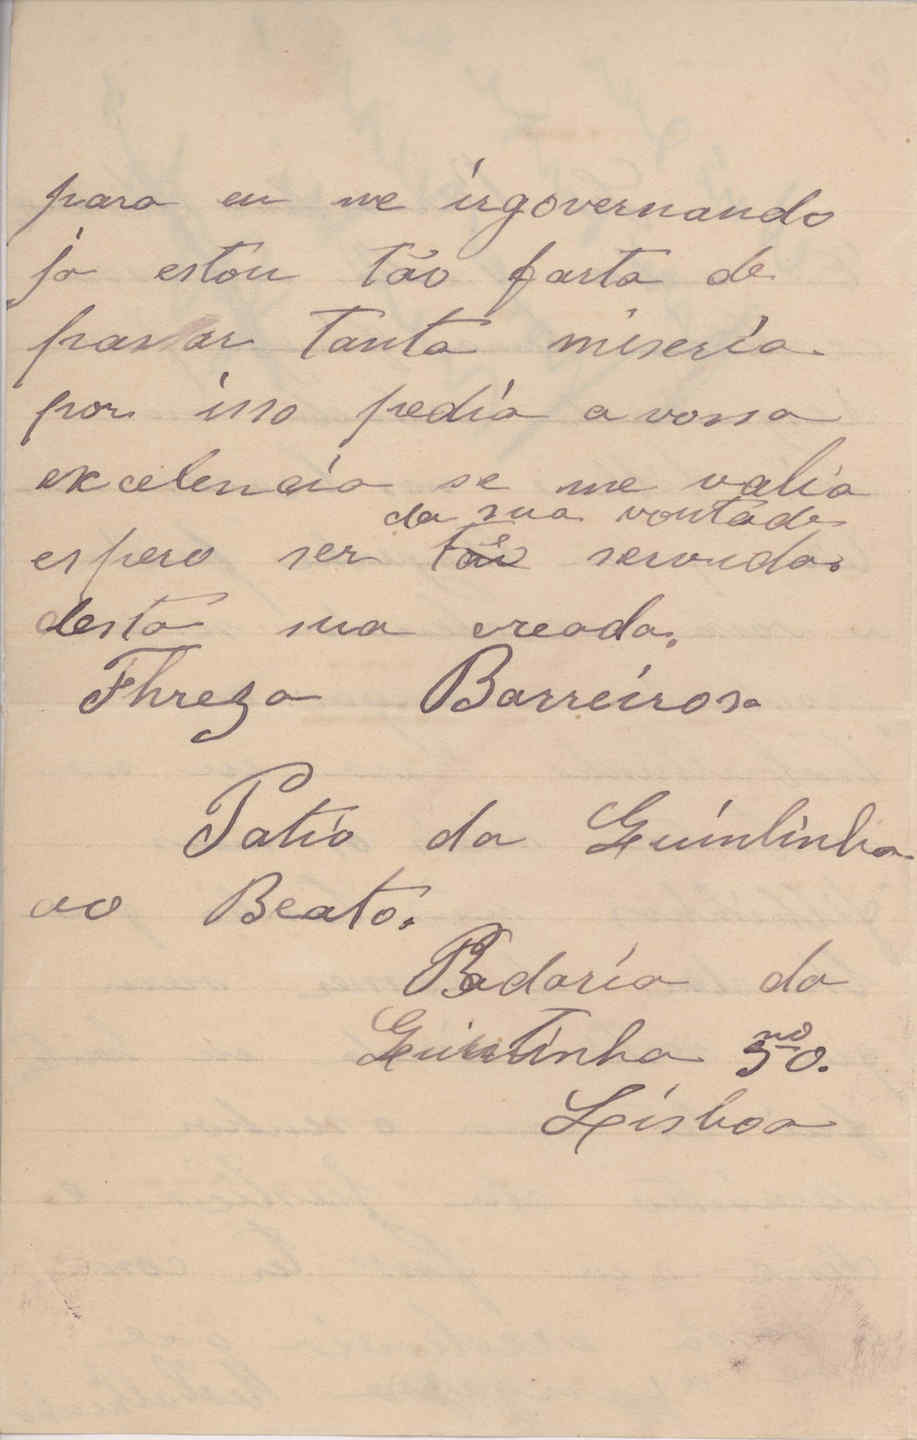 para eu me irgovernando
já estou tão farta de
passar tanta miseria.
por isso pedia a vossa
excelencia se me valia
da sua vontade
espero ser servida.
desta sua creada.
Threza Barreiros.
Patio da Quintinha
ao Beato.
Padaria da
Quintinha nº 50.
Lisboa